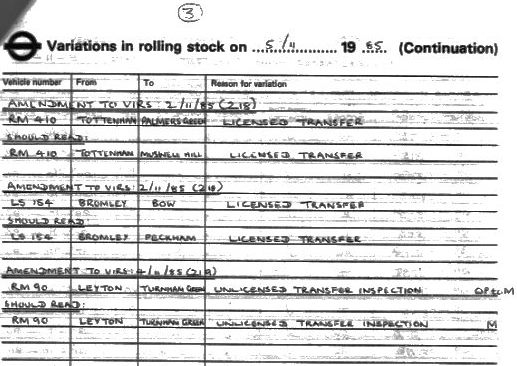 3
Variations in rolling stock on ...5/11............ 19 85. (Continuation)
Vehicle number From To Reason for variation
AMENDMENT TO VIRS: 2/11/85 (218)
RM 410 TOTTENHAM PALMERS GREEN LICENSED TRANSFER
SHOULD READ:
RM 410 TOTTENHAM MUSWELL HILL LICENSED TRANSFER
AMENDMENT TO VIRS: 2/11/85 (218)
LS 154 BROMLEY BOW LICENSED TRANSFER
SHOULD READ:
LS 154 BROMLEY PECKHAM LICENSED TRANSFER
AMENDMENT TO VIRS: 4/11/85 (219)
RM 90 LEYTON TURNHAM GREEN UNLICENSED TRANSFER INSPECTION
SHOULD READ:
RM 90 LEYTON TURNHAM GREEN UNLICENSED TRANSFER INSPECTION M